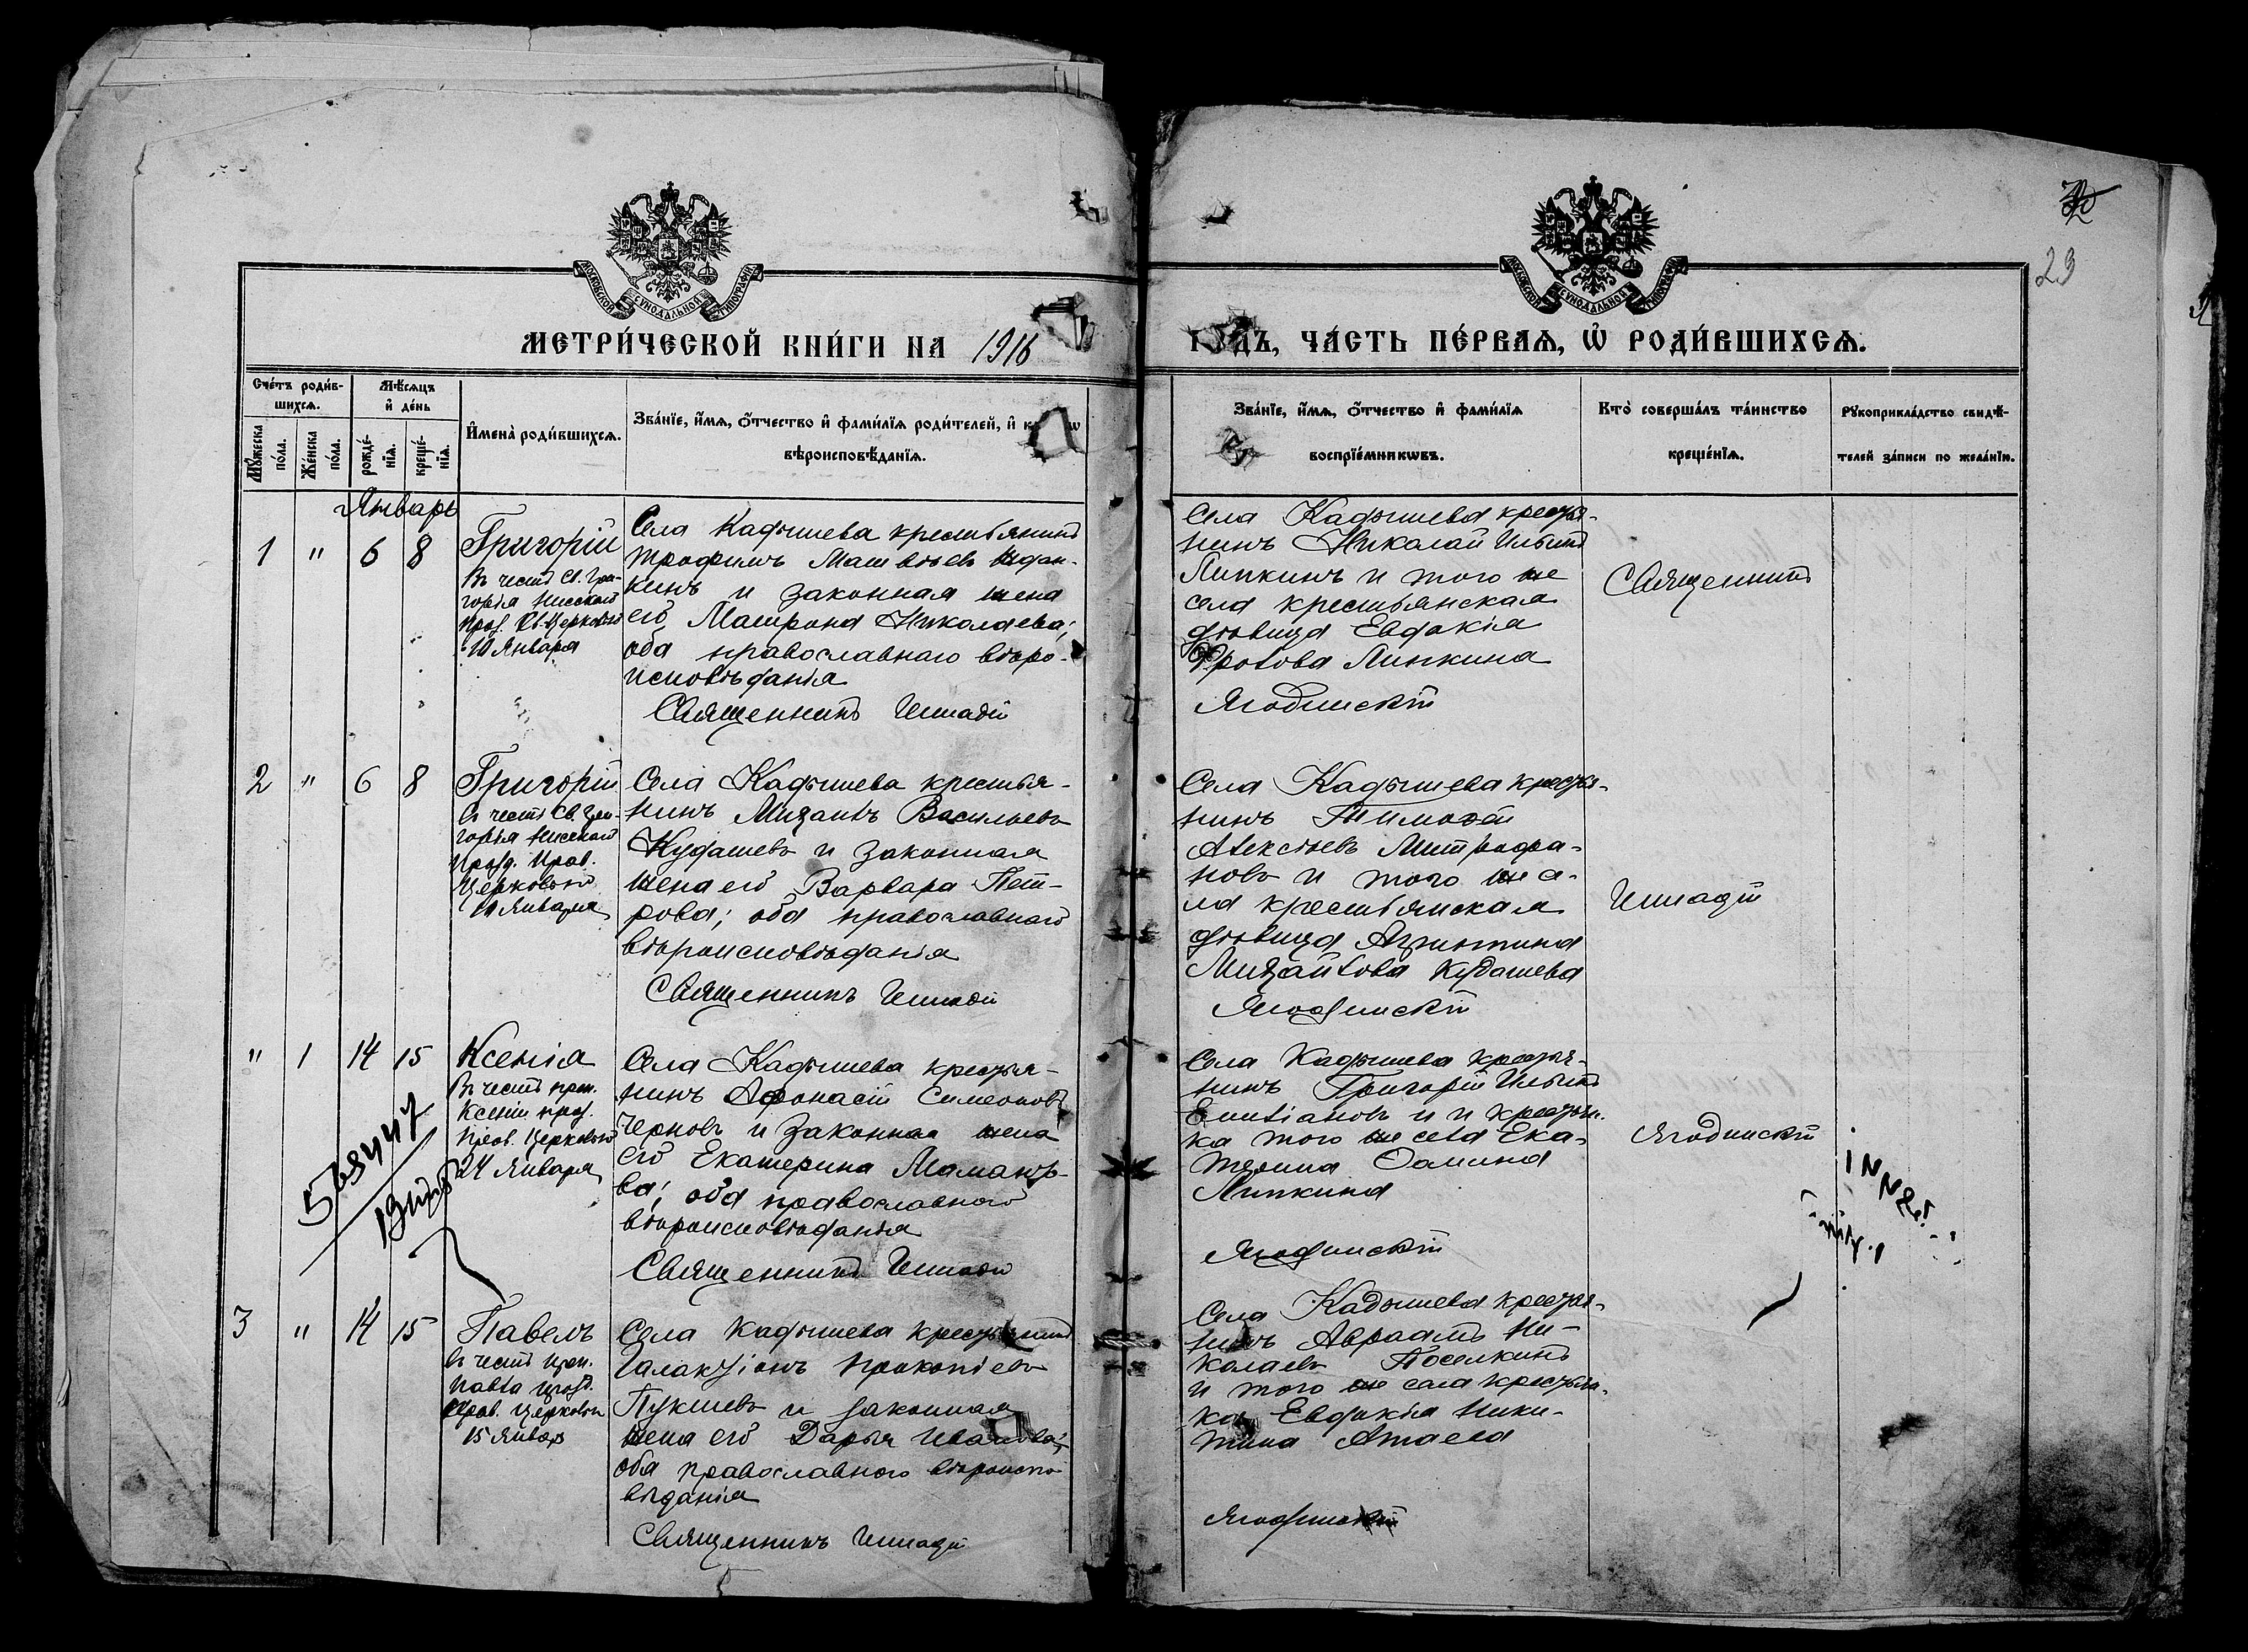 23
МОСКОВСКОЙ СѴНОДАЛЬНОЙ ТИПОГРАФІИ
МОСКОВСКОЙ СѴНОДАЛЬНОЙ ТИПОГРАФІИ
МЕТРИ́ЧЕСКОЙ КНИ́ГИ НА 1916
ГОДЪ, ЧА́СТЬ ПЕ́РВАѦ, Ѡ҆ РОДИ́ВШИХСѦ.
Сче́тъ роди́в-
шихсѧ.
Мѣ́сѧцъ
и҆ де́нь
Мꙋ́жеска
по́ла.
Же́нска
по́ла.
рожде́-
нїѧ.
креще́-
нїѧ.
И҆мена̀ роди́вшихсѧ.
Зва́нїе, и҆́мѧ, ѻ҆́тчество и҆ фами́лїѧ роди́телей, и҆
вѣроисповѣ́данїѧ.
Зва́нїе, и҆́мѧ, ѻ҆́тчество и҆ фами́лїѧ
воспрїе́мникѡвъ.
Кто̀ соверша́лъ та́инство
креще́нїѧ.
Рꙋкоприкла́дство свидѣ́-
телей за́писи по жела́нїю.
Январь
1 " 6 8
Григорій
Въ честь Св. Гри-
горія Нисскаго
праз. Св. Церковью
10 Января
Села Кадышева крестьянинъ
Трофимъ Матвѣевъ
и законная жена
его Матрона Николаева;
оба православнаго вѣро-
исповѣданія
Священникъ Геннадій
Села Кадышева крестья-
нинъ Николай Ильинъ
Липкинъ и того же
села крестьянская
дѣвица Евдокія
Фролова Липкина
Ягодинскій
Священникъ
2 " 6 8
Григорій
въ честь Св. Гри-
горія Нисскаго
празд. Прав.
Церковью
10 Января
Села Кадышева крестья-
нинъ Михаилъ Васильевъ
Кудашевъ и законная
жена его Варвара Пет-
рова; оба православнаго
вѣроисповѣданія
Священникъ Геннадій
Села Кадышева крестья-
нинъ Тимоѳей
Алексѣевъ Митрофа-
новъ и того же се-
ла крестьянская
дѣвица Агриппина
Михайлова Кудашева
Ягодинскій
Геннадій
" 1 14 15
Ксенія
Въ честь преп.
Ксеніи празд.
прав. Церковью
24 Января
Села Кадышева крестья-
нинъ Аѳонасій Симеоновъ
Черновъ и законная жена
его Екатерина
оба православнаго
вѣроисповѣданія
Священникъ Геннадій
Села Кадышева крестья-
нинъ Григорій Ильинъ
Емиліановъ и крестьян-
ка того же села Ека-
терина Ѳомина
Липкина
Ягодинскій
Ягодинскій
3 " 14 15
Павелъ
въ честь преп.
Павла празд.
прав. церковью
15 Января
Села Кадышева крестьянинъ
Галактіонъ Прокопіевъ
Пукшевъ и законная
жена его Дарья Иванова;
оба православнаго вѣроиспо-
вѣданія
Священникъ Геннадій
Села Кадышева крестья-
нинъ Авраамъ Ни-
колаевъ Поселкинъ
и того же села крестьян-
ка Евдокія Ники-
тина Атаева
Ягодинскій